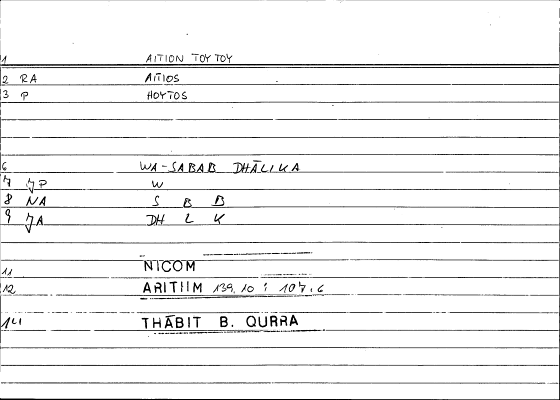 1 AITION TOYTOY
2 RA AITIOS
3 P HOYTOS
6 WA-SABAB DHĀLIKA
7 JP W
8 NA S B B
9 JA DH L K
11 NICOM
12 ARITIIM 139,10 : 107,6
14 THĀBIT B. QURRA